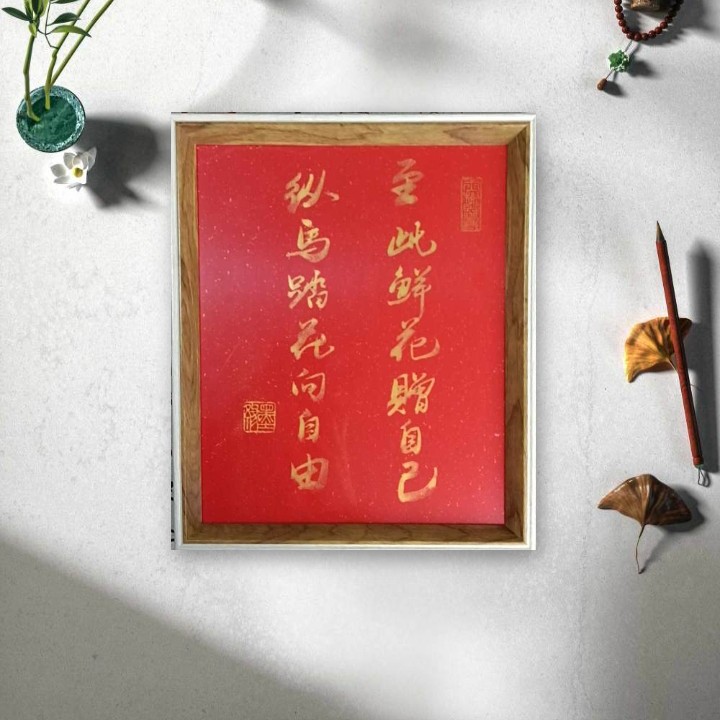 至此鲜花赠自己
纵马踏花向自由